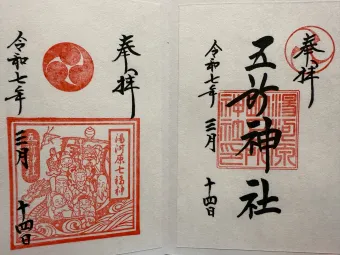 奉拝
五所神社
湯河原
令和七年 三月 十四日
奉拝
湯河原七福神
令和七年 三月 十四日